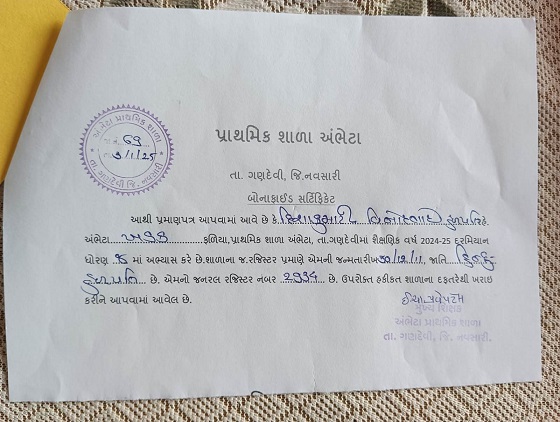 અંભેટા પ્રાથમિક શાળા
નં. 69
તા. 3/1/25
તા. ગણદેવી જિ. નવસારી
પ્રાથમિક શાળા અંભેટા
તા. ગણદેવી, જિ.નવસારી
બોનાફાઈડ સર્ટિફિકેટ
આથી પ્રમાણપત્ર આપવામાં આવે છે કે હળપતિ
અંભેટા ફળિયા,પ્રાથમિક શાળા અંભેટા, તા.ગણદેવીમાં શૈક્ષણિક વર્ષ 2024-25 દરમિયાન
ધોરણ માં અભ્યાસ કરે છે.શાળાના જ.રજિસ્ટર પ્રમાણે એમની જન્મતારીખ 30/12/11, જાતિ હિન્દુ-
હળપતિ છે. એમનો જનરલ રજિસ્ટર નંબર 2934 છે. ઉપરોક્ત હકીકત શાળાના દફતરેથી ખરાઇ
કરીને આપવામાં આવેલ છે.
મુખ્ય શિક્ષક
અંભેટા પ્રાથમિક શાળા
તા. ગણદેવી, જિ. નવસારી.